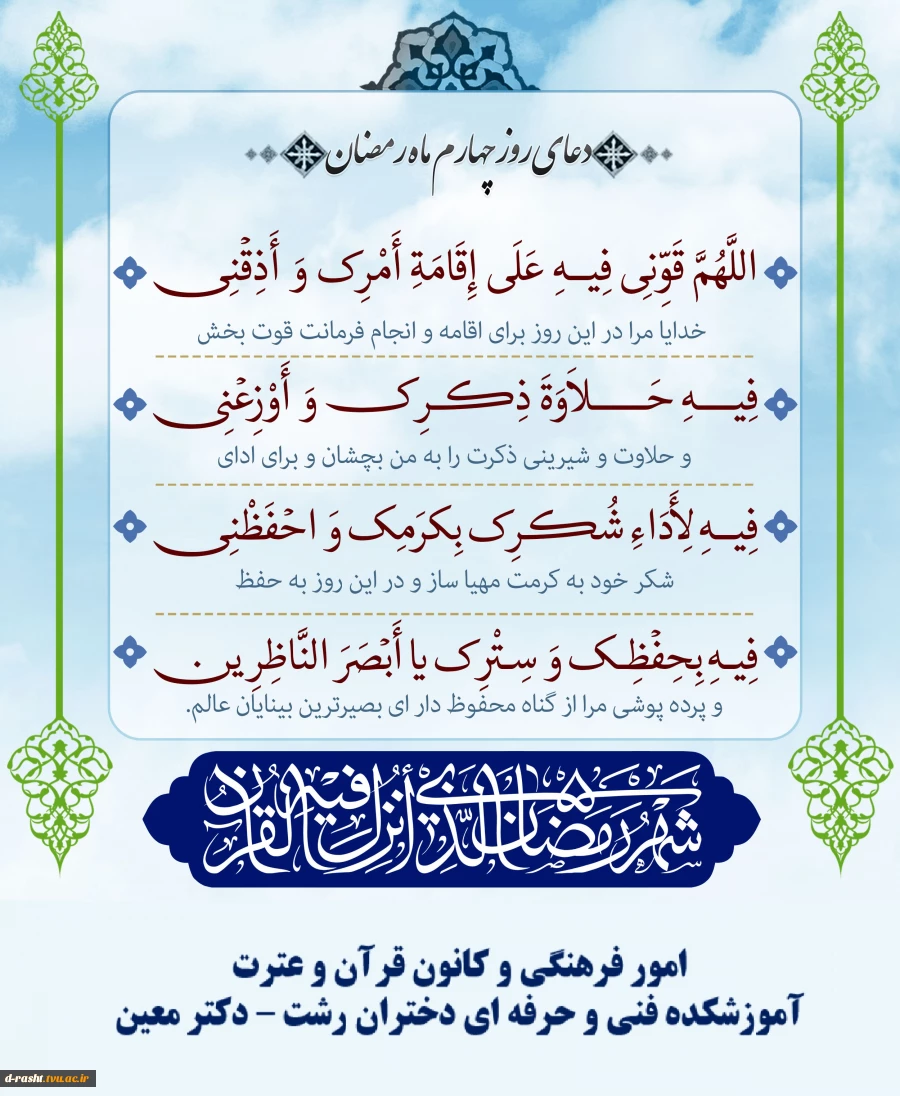 دعای روز چهارم ماه رمضان
اللَّهُمَّ قَوِّنِی فِیهِ عَلَی إِقَامَةِ أَمْرِک وَ أَذِقْنِی
خدایا مرا در این روز برای اقامه و انجام فرمانت قوت بخش
فِیهِ حَلاَوَةَ ذِکرِک وَ أَوْزِعْنِی
و حلاوت و شیرینی ذکرت را به من بچشان و برای ادای
فِیهِ لِأَدَاءِ شُکرِک بِکرَمِک وَ احْفَظْنِی
شکر خود به کرمت مهیا ساز و در این روز به حفظ
فِیهِ بِحِفْظِک وَ سِتْرِک یا أَبْصَرَ النَّاظِرِین
و پرده پوشی مرا از گناه محفوظ دار ای بصیرترین بینایان عالم.
شهر رمضان الذی أنزل فیه القرآن
امور فرهنگی و کانون قرآن و عترت
آموزشکده فنی و حرفه ای دختران رشت - دکتر معین
d-rasht.tvu.ac.ir